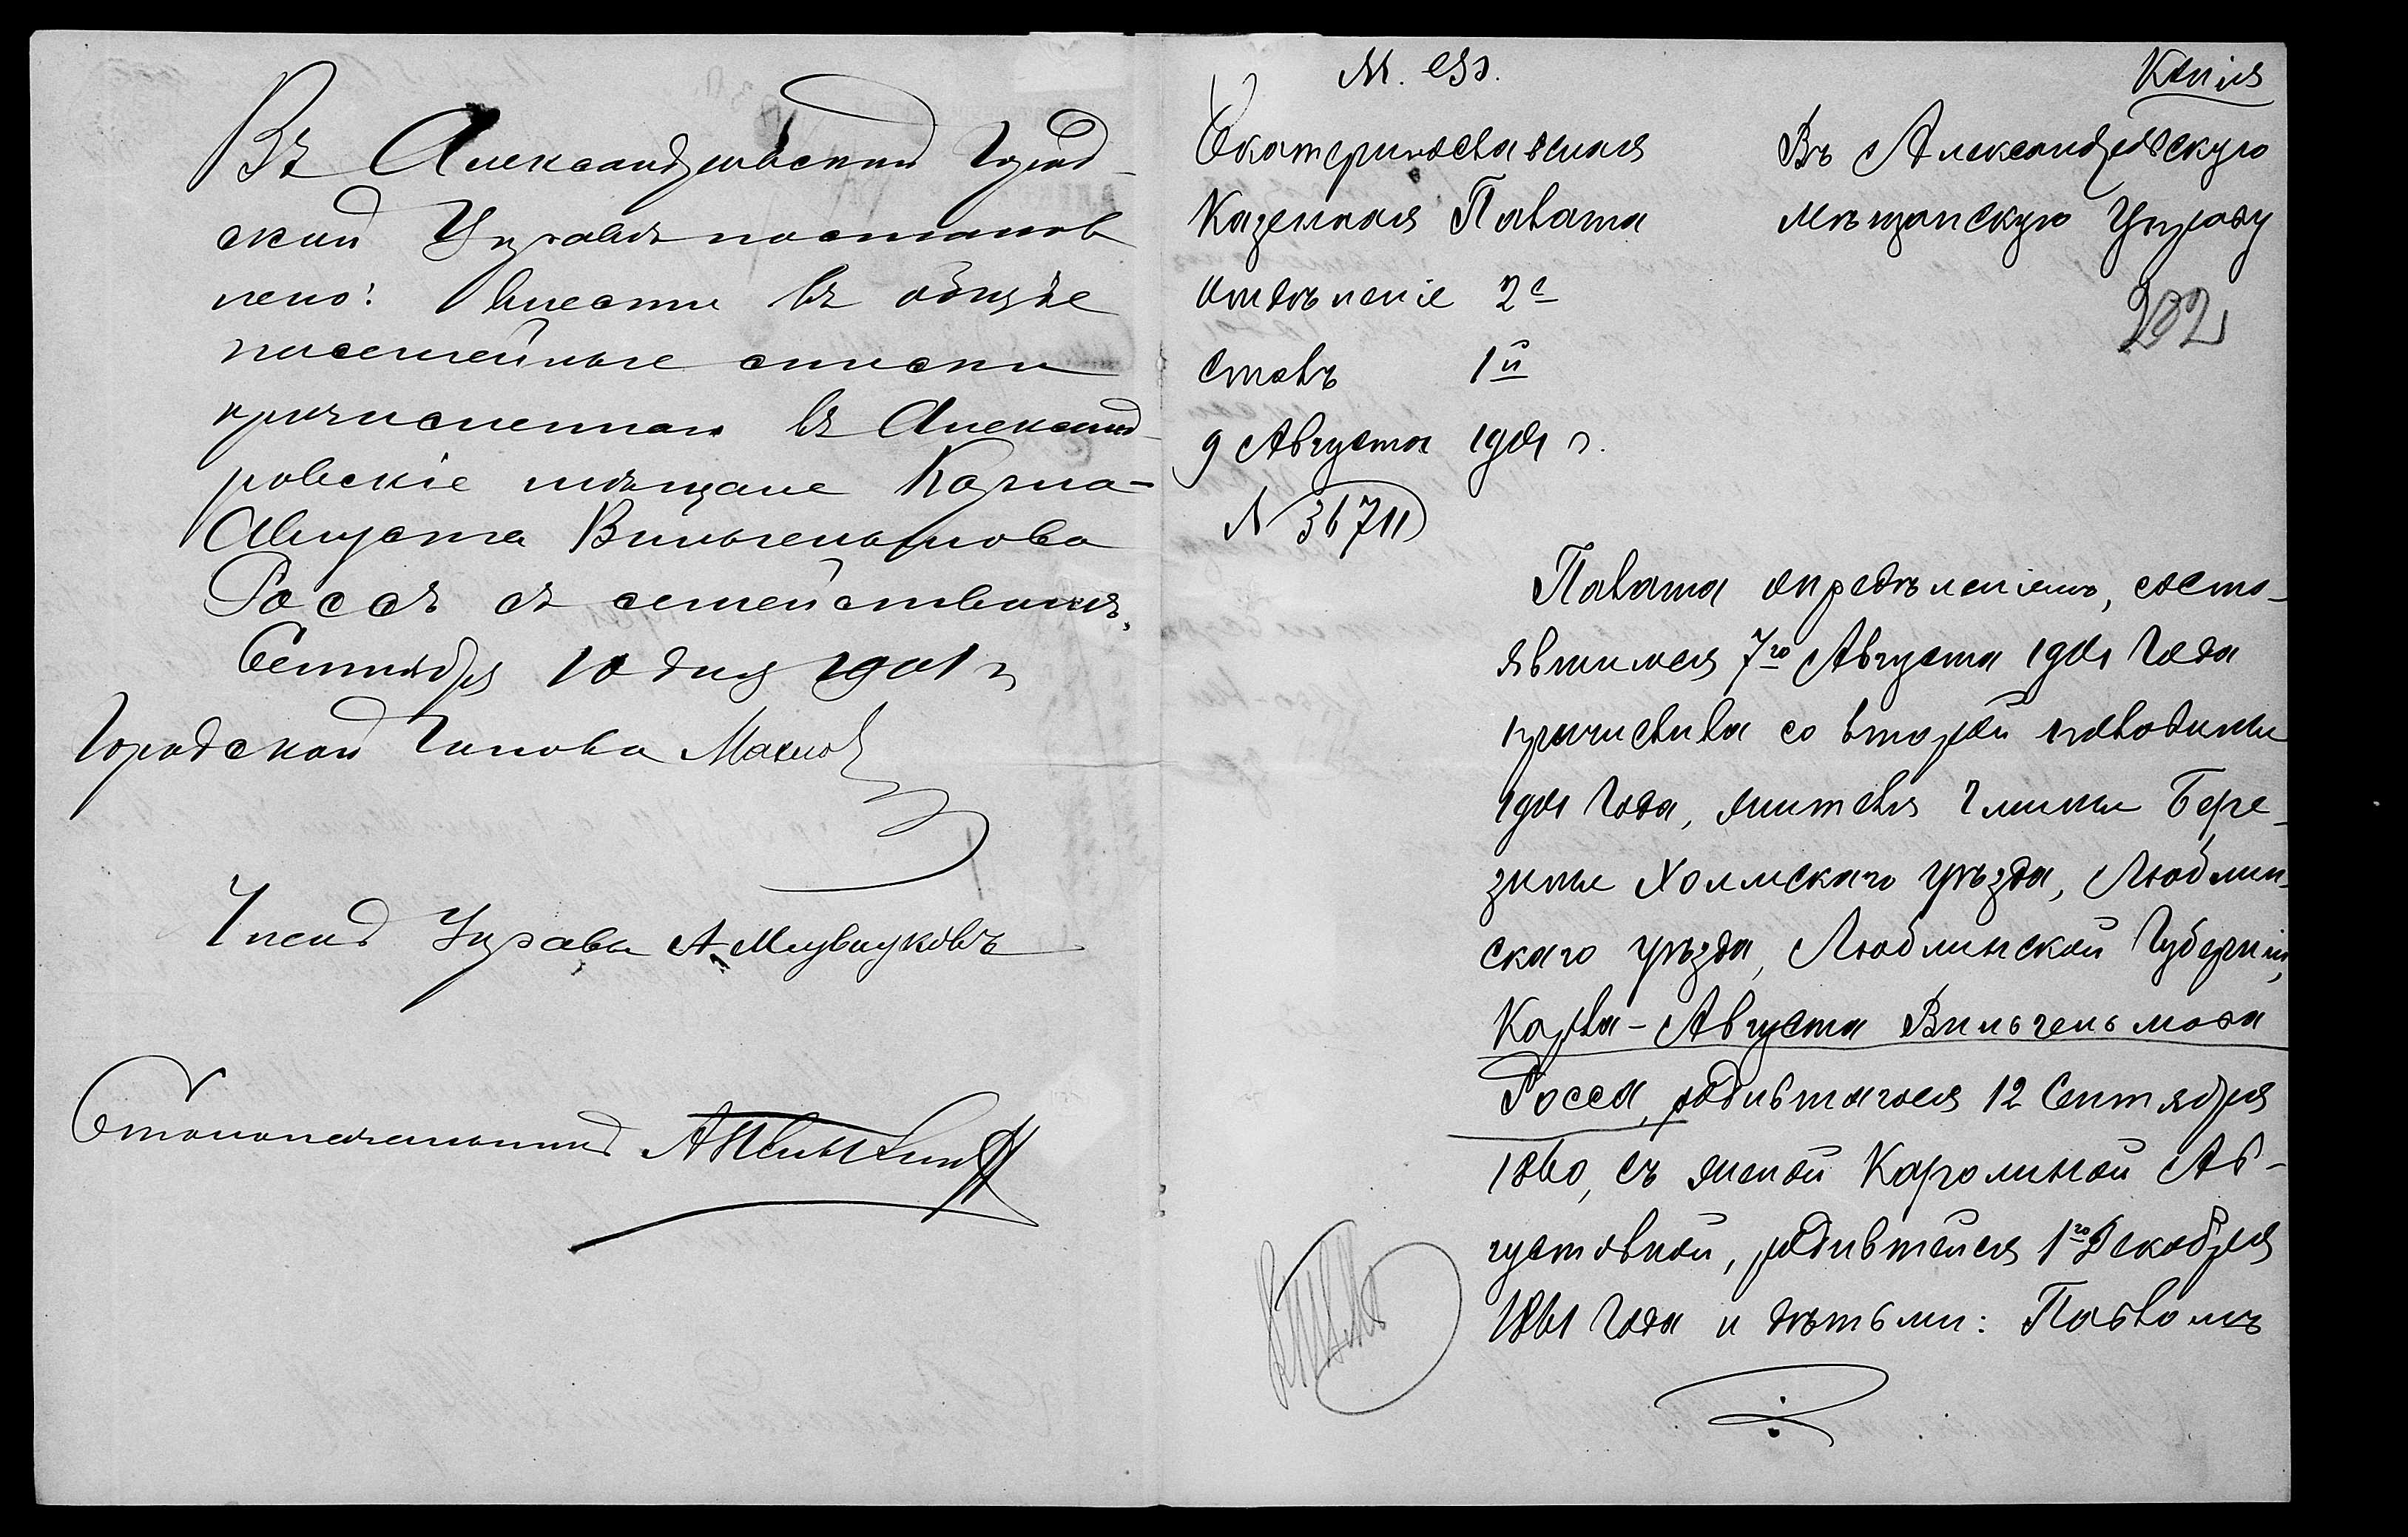 Въ Александровской Город-
ской Управѣ постанов
лено: внести въ общіе
посемейные списки
причисленнаго въ Александ-
ровскіе мѣщане Карла-
Августа Вильгельмова
Россъ съ семействомъ.
Сентября 10 дня 1901 г
Городской Голова Махно
Членъ Управы А
Столоначальникъ
М. В. Д.
Копія
Екатеринославская
Казенная Палата
Отдѣленіе 2е
Столъ 1й
9 Августа 1901 г.
№ 36711
Въ Александровскую
Мѣщанскую Управу
202
Палата опредѣленіемъ, состо-
явшимся 7го Августа 1901 года
причислила со второй половины
1901 года, жителя Гмины Бере-
зины Холмскаго уѣзда, Люблин-
скаго уѣзда, Люблинской Губерніи,
Карла-Августа Вильгельмова
Росса, родившагося 12 Сентября
1860, съ женой Каролиной Ав-
густовной, родившейся 1го Декабря
1861 года и дѣтьми: Павломъ